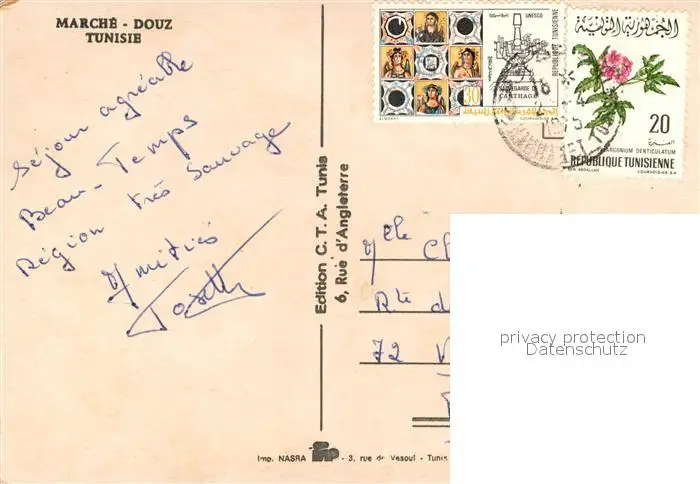 MARCHÉ - DOUZ
TUNISIE
Séjour agréable
Beau-Temps
Région très Sauvage
Amitiés
Edition C.T.A. Tunis
6, Rue d'Angleterre
UNESCO
REPUBLIQUE TUNISIENNE
SAUVEGARDE DE
CARTHAGE
30
الجمهورية التونسية
COURVOISIER
الجمهورية التونسية
20
PELARGONIUM DENTICULATUM
REPUBLIQUE TUNISIENNE
BEN ABDALLAH
COURVOISIER S.A.
Mlle C
Rte d
72 V
privacy protection
Datenschutz
Imp. NASRA - 3, rue de Vesoul - Tunis